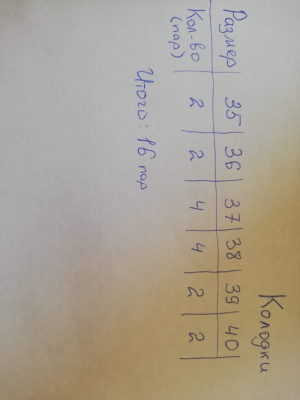 Колодки
Размер 35 36 37 38 39 40
Кол-во (пар) 2 2 4 4 2 2
Итого: 16 пар